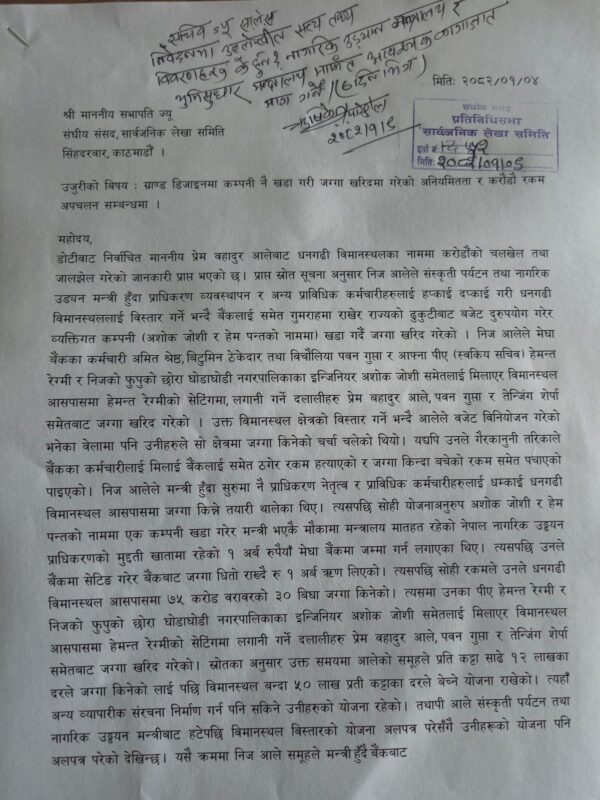 सचिव ज्यू
निवेदनमा उल्लेखीत सत्य तथ्य
नागरिक उड्यान मन्त्रालय र
भुमिसुधार मन्त्रालय मार्फत आवश्यक कागजात
प्राप्त गर्ने
२०८२।९।८
मितिः २०८२/०९/०४
श्री माननीय सभापति ज्यू
संघीय संसद, सार्वजनिक लेखा समिति
सिंहदरवार, काठमाडौं ।
संघीय संसद
प्रतिनिधिसभा
सार्वजनिक लेखा समिति
दर्ता नं:
मिति:
उजुरीको बिषय : ग्राण्ड डिजाइनमा कम्पनी नै खडा गरी जग्गा खरिदमा गरेको अनियमितता र करौडौ रकम
अपचलन सम्बन्धमा ।
महोदय,
डोटीबाट निर्वाचित माननीय प्रेम वहादुर आलेबाट धनगढी विमानस्थलका नाममा करोडौंको चलखेल तथा
जालझेल गरेको जानकारी प्राप्त भएको छ। प्राप्त स्रोत सूचना अनुसार निज आलेले संस्कृती पर्यटन तथा नागरिक
उडयन मन्त्री हुँदा प्राधिकरण व्यवस्थापन र अन्य प्राविधिक कर्मचारीहरुलाई हप्काई दप्काई गरी धनगढी
विमानस्थललाई विस्तार गर्ने भन्दै बैंकलाई समेत गुमराहमा राखेर राज्यको दुकुटीबाट बजेट दुरुपयोग गरेर
व्यक्तिगत कम्पनी (अशोक जोशी र हेम पन्तको नाममा) खडा गर्दै जग्गा खरिद गरेको । निज आलेले मेघा
बैंकका कर्मचारी अमित श्रेष्ठ, बिटुमिन ठेकेदार तथा विचौलिया पवन गुप्ता र आफ्ना पीए (स्वकिय सचिव) हेमन्त
रेग्मी र निजको फुपुको छोरा घोडाघोडी नगरपालिकाका इन्जिनियर अशोक जोशी समेतलाई मिलाएर विमानस्थल
आसपासमा हेमन्त रेग्मीको सेटिंगमा, लगानी गर्ने दलालीहरु प्रेम बहादुर आले, पवन गुप्ता र तेन्जिंग शेर्पा
समेतबाट जग्गा खरिद गरेको । उक्त विमानस्थल क्षेत्रको विस्तार गर्ने भन्दै आलेले वजेट विनियोजन गरेको
भनेका वेलामा पनि उनीहरुले सो क्षेत्रमा जग्गा किनेको चर्चा चलेको थियो। यद्यपि उनले गैरकानुनी तरिकाले
बैंकका कर्मचारीलाई मिलाई बैंकलाई समेत ठगेर रकम हत्याएको र जग्गा किन्दा बचेको रकम समेत पचाएको
पाइएको। निज आलेले मन्त्री हुँदा सुरुमा नै प्राधिकरण नेतृत्व र प्राविधिक कर्मचारीहरुलाई धम्काई धनगढी
विमानस्थल आसपासमा जग्गा किन्ने तयारी थालेका थिए। त्यसपछि सोही योजनाअनुरुप अशोक जोशी र हेम
पन्तको नाममा एक कम्पनी खडा गरेर मन्त्री भएकै मौकामा मन्त्रालय मातहत रहेको नेपाल नागरिक उड्डयन
प्राधिकरणको मुद्दती खातामा रहेको १ अर्ब रुपैयाँ मेघा बैंकमा जम्मा गर्न लगाएका थिए। त्यसपछि उनले
बैंकमा सेटिङ गरेर बैंकबाट जग्गा धितो राख्दै रु १ अर्ब ऋण लिएको। त्यसपछि सोही रकमले उनले धनगढी
विमानस्थल आसपासमा ७५ करोड वरावरको ३० बिघा जग्गा किनेको। त्यसमा उनका पीए हेमन्त रेग्मी र
निजको फुपुको छोरा घोडाघोडी नगरपालिकाका इन्जिनियर अशोक जोशी समेतलाई मिलाएर विमानस्थल
आसपासमा हेमन्त रेग्मीको सेटिंगमा लगानी गर्ने दलालीहरु प्रेम वहादुर आले, पवन गुप्ता र तेन्जिंग शेर्पा
समेतबाट जग्गा खरिद गरेको। स्रोतका अनुसार उक्त समयमा आलेको समूहले प्रति कट्टा साढे १२ लाखका
दरले जग्गा किनेको लाई पछि विमानस्थल बन्दा ५० लाख प्रती कट्टाका दरले बेच्ने योजना राखेको। त्यहाँ
अन्य व्यापारीक संरचना निर्माण गर्न पनि सकिने उनीहरुको योजना रहेको। तथापी आले संस्कृती पर्यटन तथा
नागरिक उड्डयन मन्त्रीबाट हटेपछि विमानस्थल विस्तारको योजना अलपत्र परेसँगै उनीहरूको योजना पनि
अलपत्र परेको देखिन्छ। यसै क्रममा निज आले समूहले मन्त्री हुँदै बैंकबाट